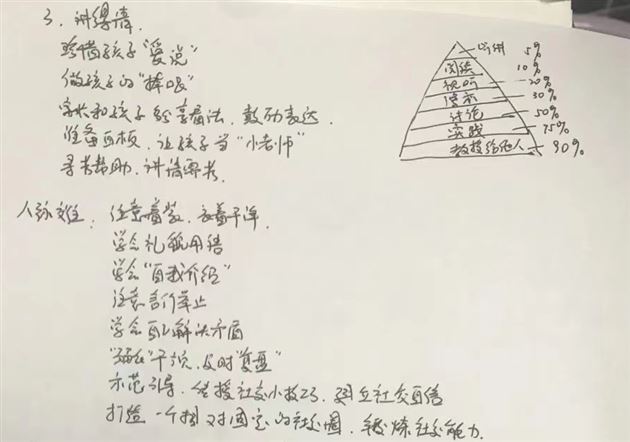 3. 讲得清
珍惜孩子"爱说"
做孩子的"捧哏"
家长和孩子 看法, 鼓励表达.
准备白板, 让孩子当"小老师"
寻求帮助, 讲清要求.
听讲 5%
阅读 10%
视听 20%
演示 30%
讨论 50%
实践 75%
教授给他人 90%
人际难: 注意着装, 衣着干净.
学会礼貌用语
学会"自我介绍"
注意言行举止
学会自己解决矛盾
干预, 及时"复盘"
示范引导, 传授社交小技巧, 建立社交自信
打造一个相对固定的社交圈, 锻炼社交能力.